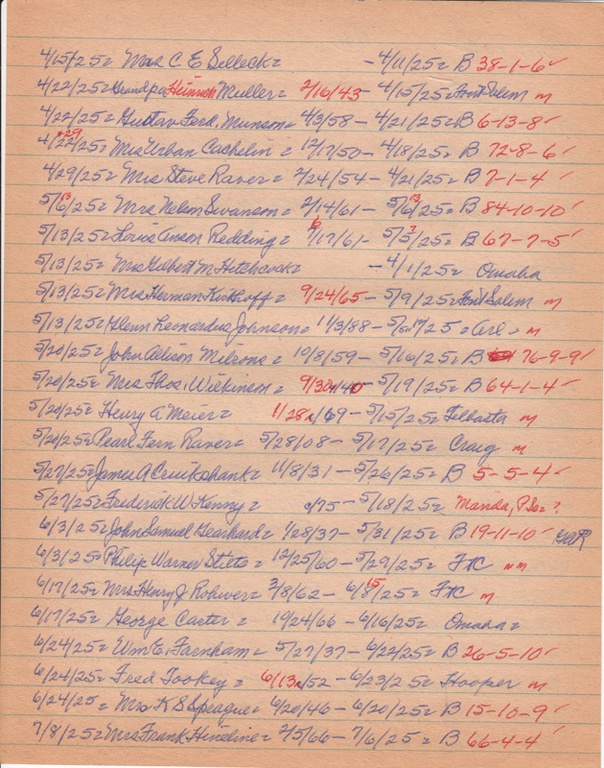 4/15/25= Mrs C E Selleck= - 4/11/25= B 38-1-6✓
4/22/25= Grandpa Heinrich Muller= 2/16/43- 4/15/25= Font Salem m
4/22/25= Gustav Ferd. Munson= 4/3/58- 4/21/25= B 6-13-8✓
4/22/25= 29 Mrs Urban Cachelin= 12/17/50- 4/18/25= B 72-8-6✓
4/29/25= Mrs Steve Raver= 2/24/54- 4/21/25= B 7-1-4✓
5/6/25= 13 Mrs Nelson Swanson= 2/14/61- 5/6/25= 13 B 84-10-10✓
5/13/25= Louis Anson Redding= 6/17/61- 5/5/25= 7 B 67-7-5✓
5/13/25= Mrs Gilbert M. Hitchcock= - 4/1/25= Omaha
5/13/25= Mrs Herman Kirkhoff= 9/24/65- 5/9/25= Font Salem m
5/13/25= Glenn Leonardus Johnson= 11/3/88- 5/ /25= Arl= m
5/20/25= John Allison Milrone= 10/8/59- 5/16/25= B 76-9-9✓
5/20/25= Mrs Thos. Wilkinson= 9/30/40- 5/19/25= B 64-1-4✓
5/20/25= Henry A Meier= 1/28/69- 5/15/25= Telbasta m
5/20/25= Pearl Fern Raver= 5/28/08- 5/17/25= Craig m
5/27/25= James A Cruikshank= 11/8/31- 5/26/25= B 5-5-4✓
5/27/25= Frederick W. Kenny= /75- 5/18/25=
6/3/25= John Samuel Gearhard= 1/28/37- 5/31/25= B 19-11-10✓
6/3/25= Philip Warner Stitts= 12/25/60- 5/29/25= FtC nm
6/17/25= Mrs Henry J Rohwer= 3/8/62- 6/8/25= 15 FtC m
6/17/25= George Carter= 10/24/66- 6/16/25= Omaha=
6/24/25= Wm E. Farnham= 5/27/37- 6/22/25= B 26-5-10✓
6/24/25= Fred Tookey= 6/13/52- 6/23/25= Hooper m
6/24/25= Mrs K S Sprague= 6/20/46- 6/20/25= B 15-10-9✓
7/8/25= Mrs Frank Hineline= 2/5/66- 7/6/25= B 66-4-4✓